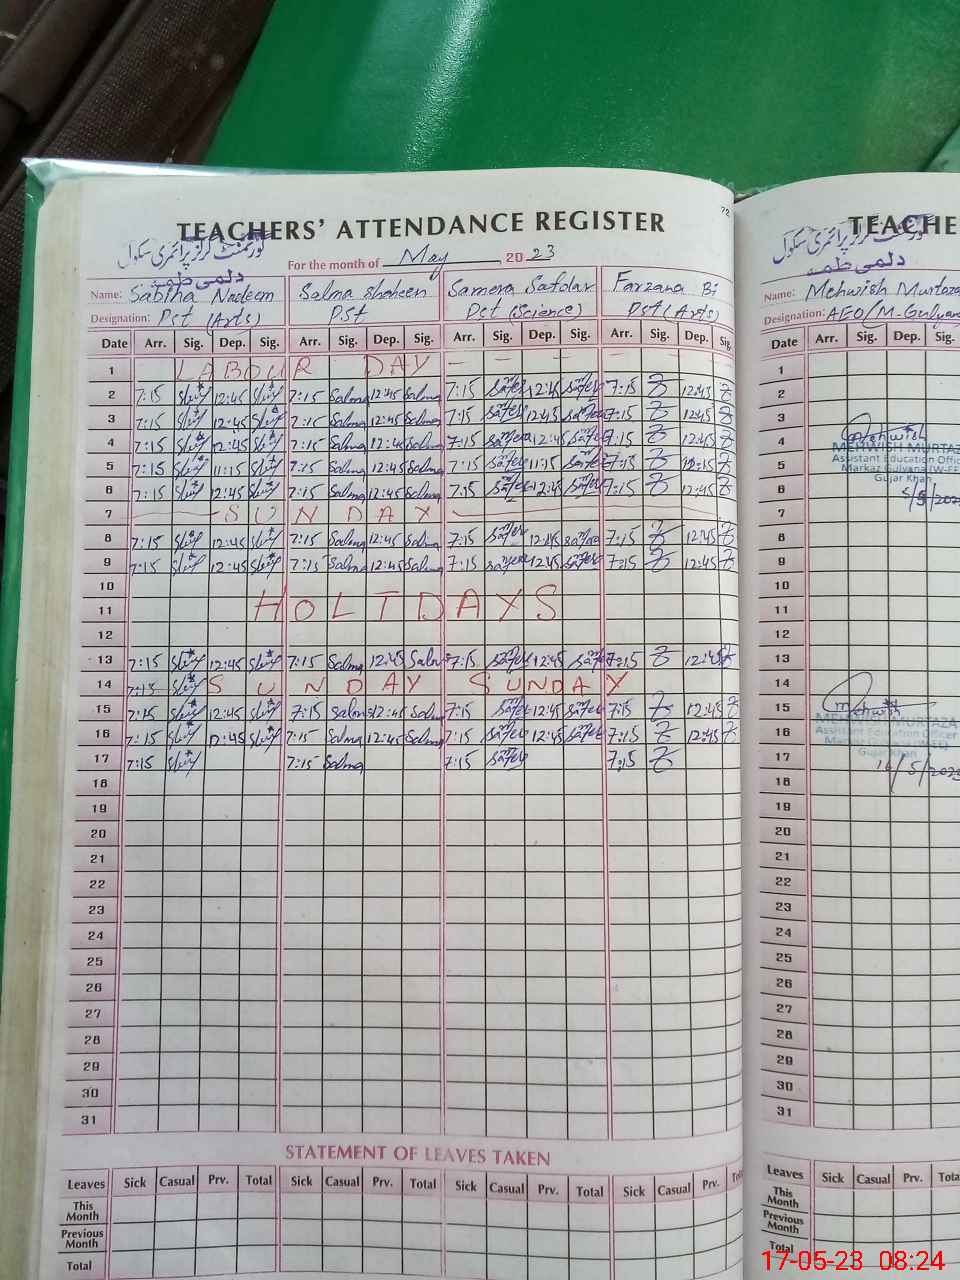 72
TEACHERS' ATTENDANCE REGISTER
گورنمنٹ گرلز پرائمری سکول
For the month of May, 2023
Name: Sabiha Nadeem Salma Shaheen Samera Safdar Farzana Bi
Designation: Pst (Arts) PST Pst (Science) Pst (Arts)
Date Arr. Sig. Dep. Sig. Arr. Sig. Dep. Sig. Arr. Sig. Dep. Sig. Arr. Sig. Dep. Sig.
1 LABOUR DAY
2 7:15 12:45 7:15 Salma 12:45 Salma 7:15 12:45 7:15 12:45
3 7:15 12:45 7:15 Salma 12:45 Salma 7:15 12:45 7:15 12:45
4 7:15 12:45 7:15 Salma 12:45 Salma 7:15 12:45 7:15 12:45
5 7:15 11:15 7:15 Salma 12:45 Salma 7:15 11:15 7:15
6 7:15 12:45 7:15 Salma 12:45 Salma 7:15 12:45 7:15 12:45
7 SUNDAY
8 7:15 12:45 7:15 Salma 12:45 Salma 7:15 12:45 7:15 12:45
9 7:15 12:45 7:15 Salma 12:45 Salma 7:15 12:45 7:15 12:45
10
11 HOLIDAYS
12
13 7:15 12:45 7:15 Salma 12:45 Salma 7:15 12:45 7:15 12:45
14 7:15 SUNDAY SUNDAY
15 7:15 12:45 7:15 Salma 12:45 Salma 7:15 12:45 7:15 12:45
16 7:15 12:45 7:15 Salma 12:45 Salma 7:15 12:45 7:15 12:45
17 7:15 7:15 Salma 7:15 7:15
18
19
20
21
22
23
24
25
26
27
28
29
30
31
STATEMENT OF LEAVES TAKEN
Leaves Sick Casual Prv. Total Sick Casual Prv. Total Sick Casual Prv. Total Sick Casual Prv.
This Month
Previous Month
Total
TEACHE
گورنمنٹ گرلز پرائمری سکول
Name: Mehwish Murtaza
Designation: AEO/M.Gulyana
Date Arr. Sig. Dep. Sig.
1
2
3
4 Mehwish
MEHWISH MURTAZA
5 Assistant Education Offi
Markaz Gulyana (W-EE
6 Gujar Khan
5/5/202
7
8
9
10
11
12
13
14
15 Mehwish
MEHWISH MURTAZA
16 Assistant Education Officer
17 Gujar Khan
16/5/2023
18
19
20
21
22
23
24
25
26
27
28
29
30
31
Leaves Sick Casual Prv. Tota
This Month
Previous Month
Total
17-05-23 08:24